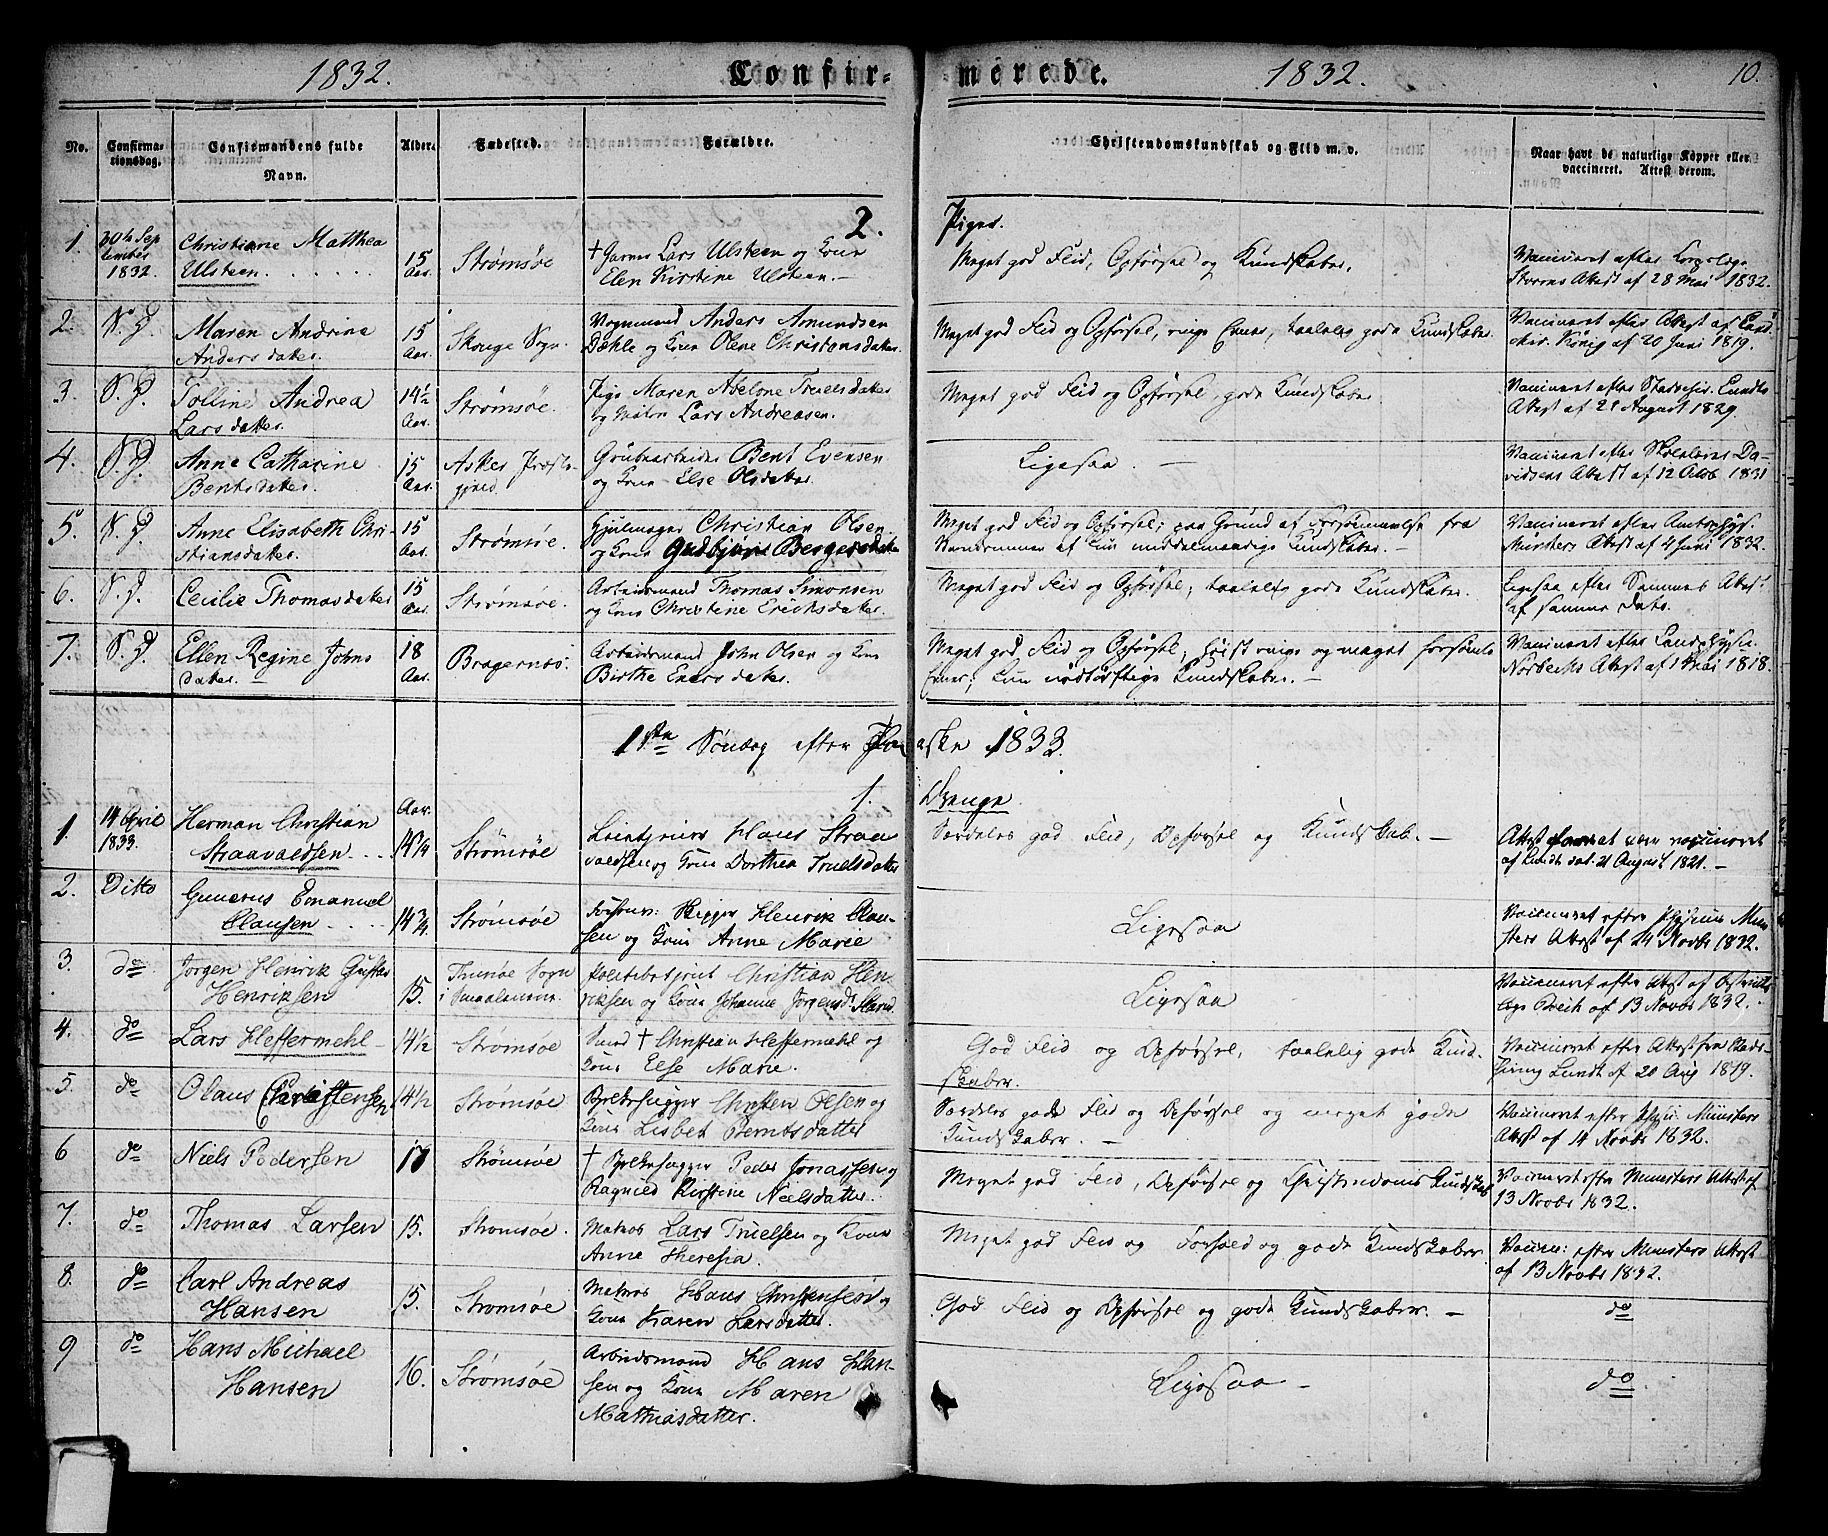 1832. Confir-
merede. 1832. 10.
No. Confirma-
tionsdag. Confirmandens fulde
Navn. Alder. Fødested. Forældre. Christendomskundskab og Flid m. v. Naar havt de naturlige Kopper eller
vaccineret. Attest derom.
2. Piger.
1. 30th Sep
tember
1832. Christiane Matthea
Ulsteen. 15
Aar. Strømsøe † Lars Ulsteen og Kone
Elen Kirstine Ulsteen. Meget god Flid, Opførsel og Kundskaber. Vaccineret efter
Attest af 28 Mai 1832.
2. S. D. Maren Andrine
Andersdatter. 15
Aar. Skouge Sogn. Vognmand Anders Amundsen
Dæhle og Kone Olene Christensdatter. Meget god Flid og Opførsel, ringe Evner, taalelig gode Kundskaber. Vaccineret efter Attest af
König af 20 Juni 1819.
3. S. D. Tolline Andrea
Larsdatter. 14½
Aar. Strømsøe. Pige Maren Abelone Truelsdatter
og Lars Andreasen. Meget god Flid og Opførsel, gode Kundskaber. Vaccineret efter Lundts
Attest af 21 August 1829.
4. S. D. Anne Catharine
Bentsdatter. 15
Aar. Asker Præste-
gjeld. Grubearbeider Bent Evensen
og Kone Else Olsdatter. Ligesaa. Vaccineret efter Skolelærer Da-
vidsens Attest af 12 Octob 1831
5. S. D. Anne Elisabeth Chri-
stiansdatter. 15
Aar. Strømsøe. Hjulmager Christian Olsen
og Kone Gudbjør Bergersdatter Meget god Flid og Opførsel; paa Grund af Forsømmelse fra
af kun middelmaadige Kundskaber. Vaccineret efter
Münsters Attest af 4 Juni 1832.
6. S. D. Cecilie Thomasdatter 15
Aar. Strømsøe. Arbeidsmand Thomas Simonsen
og Kone Christine Erichsdatter. Meget god Flid og Opførsel; taalelig gode Kundskaber. Ligesaa efter Sammes Attest
af samme Dato.
7. S. D. Ellen Regine Johns
datter. 18
Aar. Bragernes. Arbeidsmand John Olsen og Kone
Birthe Enersdatter. Meget god Flid og Opførsel; høist ringe og meget forsømte
Evner; kun nødtørftige Kundskaber. Vaccineret efter Landphysic.
Norbechs Attest af 1 Mai 1818.
1ste Søndag efter Paaske 1833.
1. Drenge.
1. 14 April
1833. Herman Christian
Straavaldsen Aar.
14¼ Strømsøe Hans Straa
valdsen og Kone Dorthea Truelsdatter Særdeles god Flid, Opførsel og Kundskab. Attest at være vaccineret
af Lundt dat. 21 August 1821.
2. Ditto Gunerus Emanuel
Clausen 14¾ Strømsøe Skipper Henrik Clau-
sen og Kone Anne Marie Ligesaa Vaccineret efter Physicus Mün-
sters Attest af 24 Novbr 1832.
3. do Jørgen Henrik Gustav
Henriksen 15. Thunøe Sogn
i Smaalenene. Politibetjent Christian Hen-
riksen og Kone Johanne Jørgensd. Ligesaa Vaccineret efter Attest af
af 13 Novbr 1832.
4. do Lars Heffermehl 14½ Strømsøe Smed † Christian Heffermehl og
Kone Else Marie. God Flid og Opførsel, taalelig gode Kund-
skaber. Vaccineret efter Attest fra Stads-
Lundt af 20 Aug 1819.
5. do Olaus Christensen 14½ Strømsøe Christen Olsen og
Kone Lisbet Berntsdatter Særdeles gode Flid og Opførsel og meget gode
Kundskaber. Vaccineret efter Physi. Münsters
Attest af 14 Novbr 1832.
6 do Niels Pedersen Strømsøe † Peder Jonassen og
Ragnild Kirstine Neelsdatter. Meget god Flid, Opførsel og Christendoms Kundskab Vaccineret efter Münsters Attest af
13 Novbr 1832.
7. do Thomas Larsen 15. Strømsøe. Matros Lars Truelsen og Kone
Anne Theresia. Meget god Flid og Forhold og gode Kundskaber. Vaccin: efter Münsters Attest
af 13 Novbr 1832.
8. do Carl Andreas
Hansen 15. Strømsøe Matros Hans Christensen og
Kone Karen Larsdatter. God Flid og Opførsel og gode Kundskaber. do
9 do Hans Michael
Hansen 16. Strømsøe Arbeidsmand Hans Han-
sen og Kone Maren
Mathiasdatter. Ligesaa do